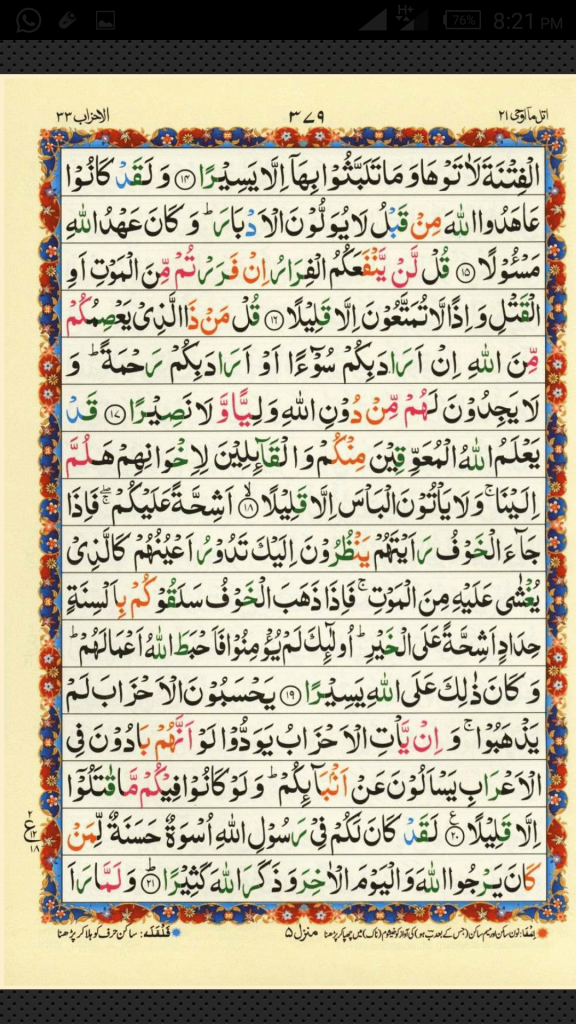 H+ 76% 8:21 PM
اتل مآاوحی ۲۱ ۳۷۹ الاحزاب ۳۳
الْفِتْنَةَ لَاٰتَوْهَا وَمَا تَلَبَّثُوْا بِهَاۤ اِلَّا يَسِيْرًا ﴿۱۴﴾ وَ لَقَدْ كَانُوْا
عَاهَدُوا اللّٰهَ مِنْ قَبْلُ لَا يُوَلُّوْنَ الْاَدْبَارَ ؕ وَ كَانَ عَهْدُ اللّٰهِ
مَسْـُٔوْلًا ﴿۱۵﴾ قُلْ لَّنْ يَّنْفَعَكُمُ الْفِرَارُ اِنْ فَرَرْتُمْ مِّنَ الْمَوْتِ اَوِ
الْقَتْلِ وَ اِذًا لَّا تُمَتَّعُوْنَ اِلَّا قَلِيْلًا ﴿۱۶﴾ قُلْ مَنْ ذَا الَّذِيْ يَعْصِمُكُمْ
مِّنَ اللّٰهِ اِنْ اَرَادَ بِكُمْ سُوْٓءًا اَوْ اَرَادَ بِكُمْ رَحْمَةً ؕ وَ
لَا يَجِدُوْنَ لَهُمْ مِّنْ دُوْنِ اللّٰهِ وَلِيًّا وَّ لَا نَصِيْرًا ﴿۱۷﴾ قَدْ
يَعْلَمُ اللّٰهُ الْمُعَوِّقِيْنَ مِنْكُمْ وَ الْقَآئِلِيْنَ لِاِخْوَانِهِمْ هَلُمَّ
اِلَيْنَا ۚ وَ لَا يَاْتُوْنَ الْبَاْسَ اِلَّا قَلِيْلًا ﴿۱۸﴾ۙ اَشِحَّةً عَلَيْكُمْ ۖۚ فَاِذَا
جَآءَ الْخَوْفُ رَاَيْتَهُمْ يَنْظُرُوْنَ اِلَيْكَ تَدُوْرُ اَعْيُنُهُمْ كَالَّذِيْ
يُغْشٰى عَلَيْهِ مِنَ الْمَوْتِ ۚ فَاِذَا ذَهَبَ الْخَوْفُ سَلَقُوْكُمْ بِاَلْسِنَةٍ
حِدَادٍ اَشِحَّةً عَلَى الْخَيْرِ ؕ اُولٰٓئِكَ لَمْ يُؤْمِنُوْا فَاَحْبَطَ اللّٰهُ اَعْمَالَهُمْ ؕ
وَ كَانَ ذٰلِكَ عَلَى اللّٰهِ يَسِيْرًا ﴿۱۹﴾ يَحْسَبُوْنَ الْاَحْزَابَ لَمْ
يَذْهَبُوْا ۚ وَ اِنْ يَّاْتِ الْاَحْزَابُ يَوَدُّوْا لَوْ اَنَّهُمْ بَادُوْنَ فِي
الْاَعْرَابِ يَسْاَلُوْنَ عَنْ اَنْۢبَآئِكُمْ ؕ وَ لَوْ كَانُوْا فِيْكُمْ مَّا قٰتَلُوْۤا
اِلَّا قَلِيْلًا ﴿۲۰﴾ۧ لَقَدْ كَانَ لَكُمْ فِيْ رَسُوْلِ اللّٰهِ اُسْوَةٌ حَسَنَةٌ لِّمَنْ
كَانَ يَرْجُوا اللّٰهَ وَ الْيَوْمَ الْاٰخِرَ وَ ذَكَرَ اللّٰهَ كَثِيْرًا ﴿۲۱﴾ؕ وَ لَمَّا رَاَ
۲
ع
۱۲
۱۸
اخفا: نون ساکن اور میم ساکن (جس کے بعد ب ہو) کی آواز کو خیشوم (ناک) میں چھپا کر پڑھنا منزل ۵ قلقلہ: ساکن حرف کو ہلا کر پڑھنا